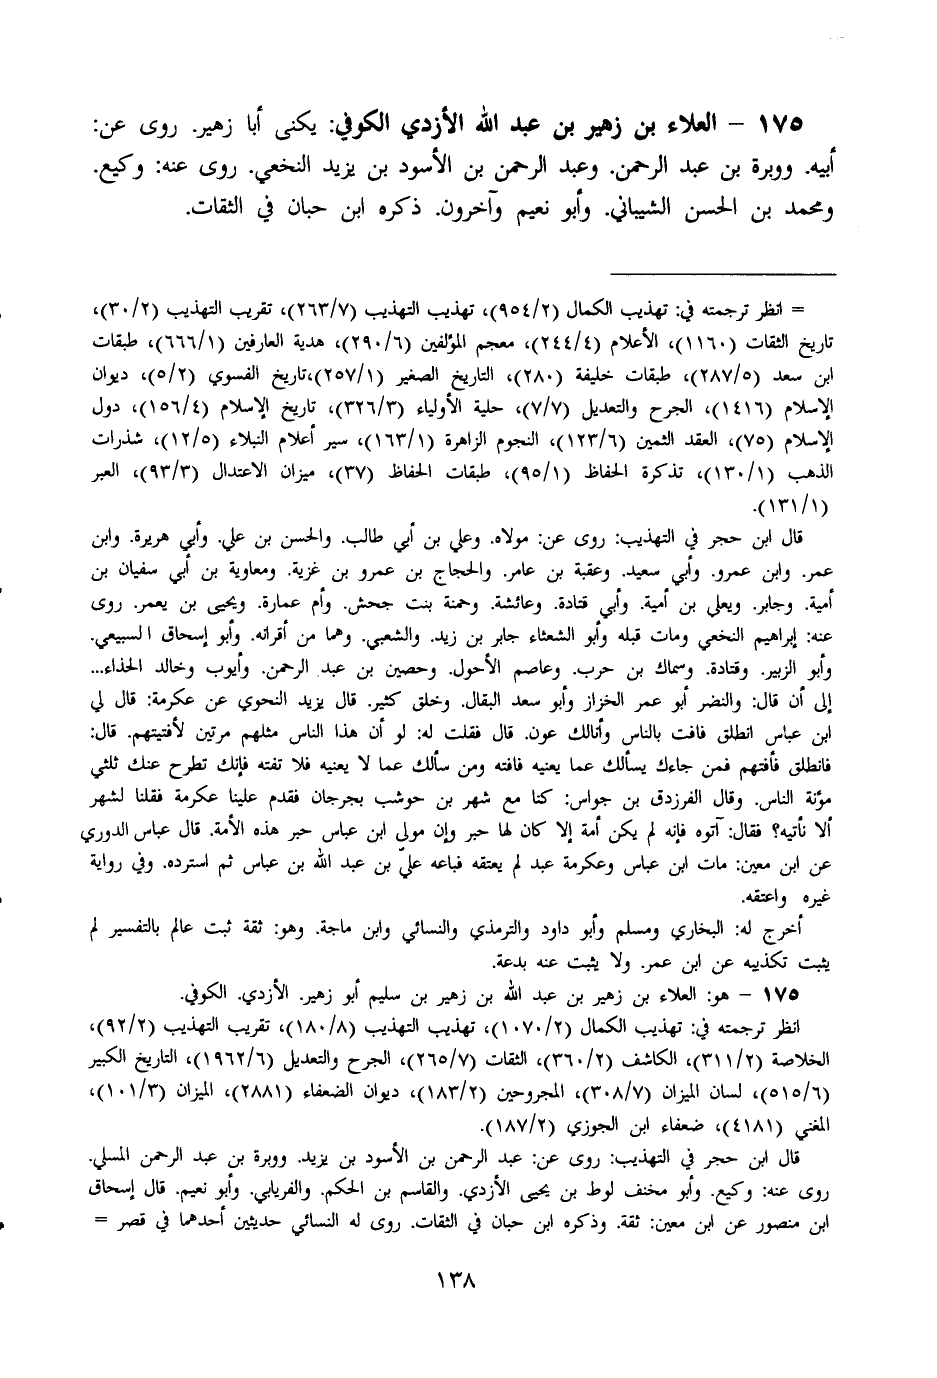 ١٧٥ – العلاء بن زهير بن عبد الله الأزدي الكوفي: يكنى أبا زهير. روى عن:
أبيه. ووبرة بن عبد الرحمن. وعبد الرحمن بن الأسود بن يزيد النخعي. روى عنه: وكيع.
ومحمد بن الحسن الشيباني. وأبو نعيم وآخرون. ذكره ابن حبان في الثقات.
= انظر ترجمته في: تهذيب الكمال (٩٥٤/٢)، تهذيب التهذيب (٢٦٣/٧)، تقريب التهذيب (٣٠/٢)،
تاريخ الثقات (١١٦٠)، الأعلام (٢٤٤/٤)، معجم المؤلفين (٢٩٠/٦)، هدية العارفين (٦٦٦/١)، طبقات
ابن سعد (٢٨٧/٥)، طبقات خليفة (٢٨٠)، التاريخ الصغير (٢٥٧/١)،تاريخ الفسوي (٥/٢)، ديوان
الإسلام (١٤١٦)، الجرح والتعديل (٧/٧)، حلية الأولياء (٣٢٦/٣)، تاريخ الإسلام (١٥٦/٤)، دول
الإسلام (٧٥)، العقد الثمين (١٢٣/٦)، النجوم الزاهرة (١٦٣/١)، سير أعلام النبلاء (١٢/٥)، شذرات
الذهب (١٣٠/١)، تذكرة الحفاظ (٩٥/١)، طبقات الحفاظ (٣٧)، ميزان الاعتدال (٩٣/٣)، العبر
(١٣١/١).
قال ابن حجر في التهذيب: روى عن: مولاه. وعلي بن أبي طالب. والحسن بن علي. وأبي هريرة. وابن
عمر. وابن عمرو. وأبي سعيد. وعقبة بن عامر. والحجاج بن عمرو بن غزية. ومعاوية بن أبي سفيان بن
أمية. وجابر. ويعلي بن أمية. وأبي قتادة. وعائشة. وحمنة بنت جحش. وأم عمارة. ويحيى بن يعمر. روى
عنه: إبراهيم النخعي ومات قبله وأبو الشعثاء جابر بن زيد. والشعبي. وهما من أقرانه. وأبو إسحاق السبيعي.
وأبو الزبير. وقتادة. وسماك بن حرب. وعاصم الأحول. وحصين بن عبد الرحمن. وأيوب وخالد الحذاء...
إلى أن قال: والنضر أبو عمر الخزاز وأبو سعد البقال. وخلق كثير. قال يزيد النحوي عن عكرمة: قال لي
ابن عباس انطلق فافت بالناس وأنالك عون. قال فقلت له: لو أن هذا الناس مثلهم مرتين لأفتيتهم. قال:
فانطلق فأفتهم فمن جاءك يسألك عما يعنيه فافته ومن سألك عما لا يعنيه فلا تفته فإنك تطرح عنك ثلثي
مؤنة الناس. وقال الفرزدق بن جواس: كنا مع شهر بن حوشب بجرجان فقدم علينا عكرمة فقلنا لشهر
ألا نأتيه؟ فقال: آتوه فإنه لم يكن أمة إلا كان لها حبر وإن مولى ابن عباس حبر هذه الأمة. قال عباس الدوري
عن ابن معين: مات ابن عباس وعكرمة عبد لم يعتقه فباعه عليّ بن عبد الله بن عباس ثم استرده. وفي رواية
غيره واعتقه.
أخرج له: البخاري ومسلم وأبو داود والترمذي والنسائي وابن ماجة. وهو: ثقة ثبت عالم بالتفسير لم
يثبت تكذيبه عن ابن عمر. ولا يثبت عنه بدعة.
١٧٥ – هو: العلاء بن زهير بن عبد الله بن زهير بن سليم أبو زهير. الأزدي. الكوفي.
انظر ترجمته في: تهذيب الكمال (١٠٧٠/٢)، تهذيب التهذيب (١٨٠/٨)، تقريب التهذيب (٩٢/٢)،
الخلاصة (٣١١/٢)، الكاشف (٣٦٠/٢)، الثقات (٢٦٥/٧)، الجرح والتعديل (١٩٦٢/٦)، التاريخ الكبير
(٥١٥/٦)، لسان الميزان (٣٠٨/٧)، المجروحين (١٨٣/٢)، ديوان الضعفاء (٢٨٨١)، الميزان (١٠١/٣)،
المغني (٤١٨١)، ضعفاء ابن الجوزي (١٨٧/٢).
قال ابن حجر في التهذيب: روى عن: عبد الرحمن بن الأسود بن يزيد. ووبرة بن عبد الرحمن المسلي.
روى عنه: وكيع. وأبو مخنف لوط بن يحيى الأزدي. والقاسم بن الحكم. والفريابي. وأبو نعيم. قال إسحاق
ابن منصور عن ابن معين: ثقة. وذكره ابن حبان في الثقات. روى له النسائي حديثين أحدهما في قصر =
١٣٨